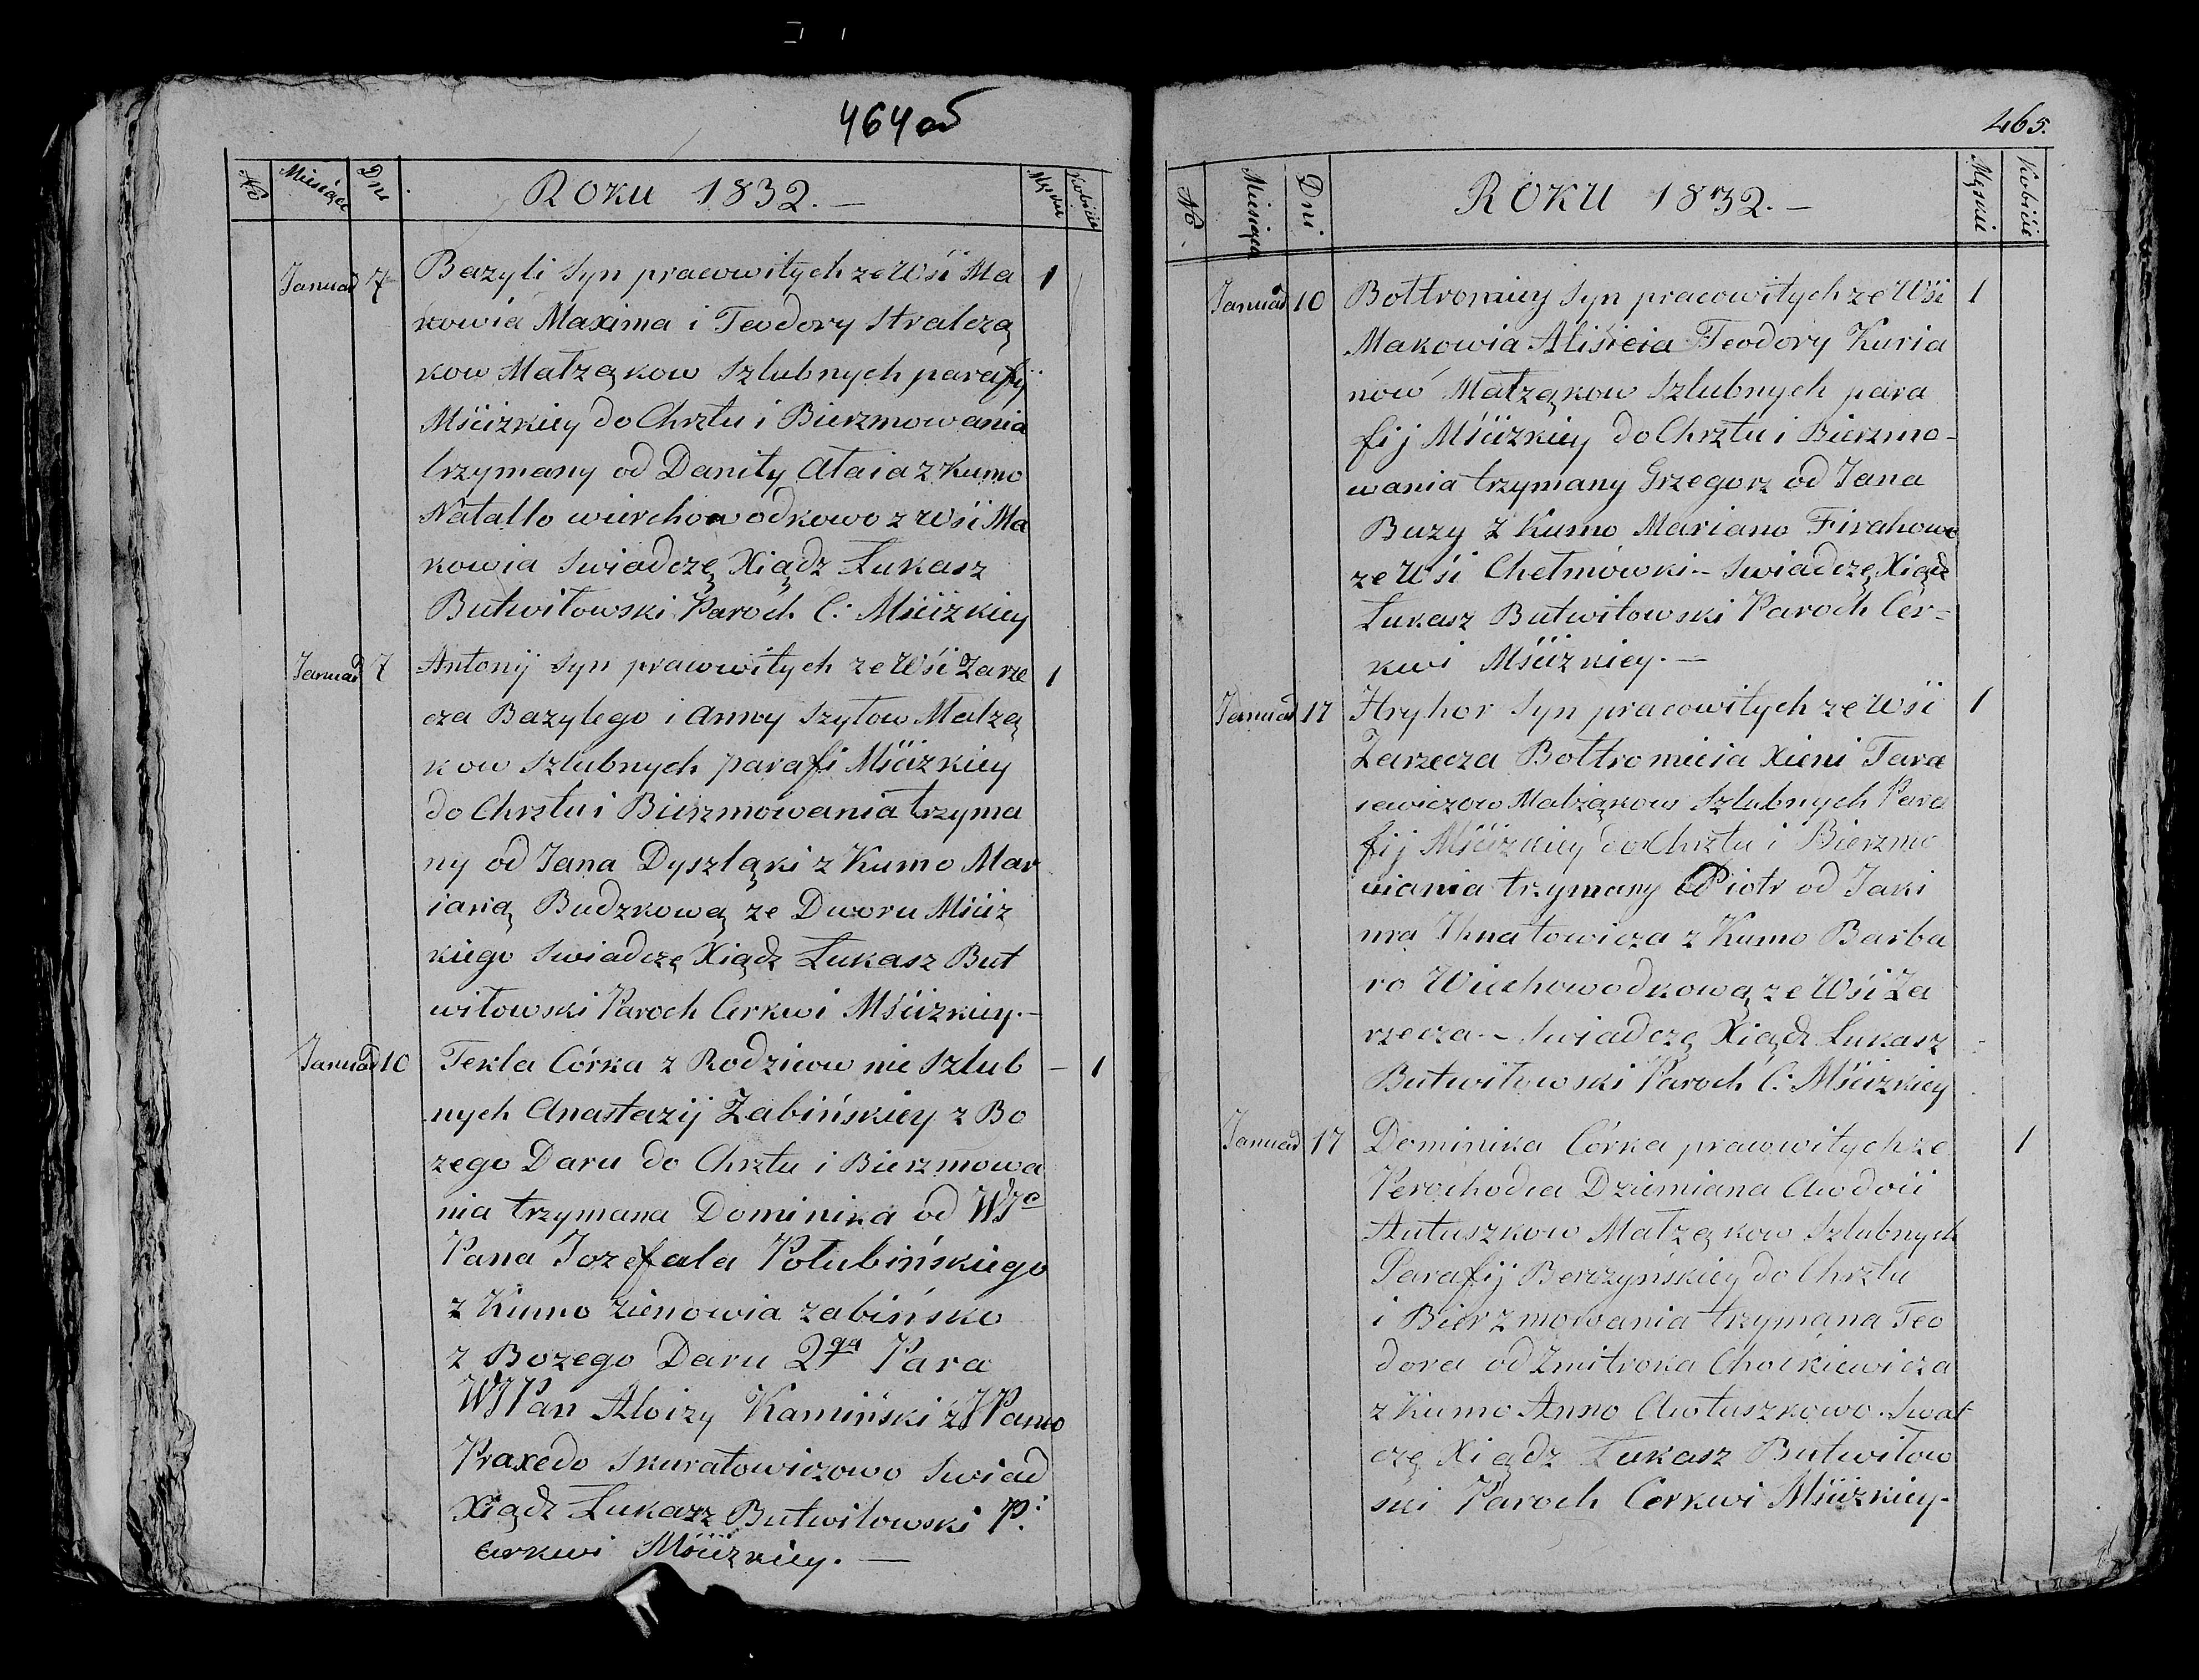 464об
No Miesiąca Dni ROKU 1832.— Męskie Kobiéce
Januad 7 Bazyli Syn pracowitych ze Wśi Ma 1
kowia Maxima i Teodory Stralczą
kow Małząkow Szlubnych parafij
Mśćizkiey do Chrztu i Bierzmowania
trzymany od Daniły Ataia z Kumo
Natallo wierchowodkowo z Wśi Ma
kowia Swiadczę Xiądz Łukasz
Butwiłowski Paroch C: Mśćizkiey
Januad 7 Antonij Syn pracowitych ze Wśi Zarze 1
cza Bazylego i Anny Szytow Malzą
kow Szlubnych parafi Mśćizkiey
do Chrztu i Bierzmowania trzyma
ny od Jana Dyszląki z Kumo Mar
ianą Budzkową ze Dworu Mśćiz
kiego Swiadczę Xiądz Łukasz But
wiłowski Paroch Cerkwi Mśćizkiey.—
Januad 10 Tekla Córka z Rodziców nie Szlub — 1
nych Anastazij Zabińskiey z Bo
zego Daru do Chrztu i Bierzmowa
nia trzymana Dominika od WJo
Pana Jozefata Połubińskiego
z Kumo zienowia zabińsko
z Bozego Daru 2ga Para
WJPan Aloizy Kamiński z JPano
Praxedo Skuratowiczowo Swiad
Xiądz Łukasz Butwiłowski P:
Cerkwi Mśćizkiey.—
465.
No. Miesiąca Dni ROKU 1832.— Męskie Kobiéce
Januad 10 Bołtromiey Syn pracowitych ze Wśi 1
Makowia Aliśieia Teodory Kuria
now Małząkow Szlubnych para
fij Mśćizkiey do Chrztu i Bierzmo-
wania trzymany Grzegorz od Jana
Buzy z Kumo Mariano Firahowo
ze Wśi Chełmówki.— Swiadczę Xiądz
Łukasz Butwiłowski Paroch Cer-
kwi Mśćizkiey.—
Januad 17 Hryhor Syn pracowitych ze Wśi 1
Zarzecza Bołtromieia Xieni Tara
iewiczow Malżąkow Szlubnych Para
fij Mśćizkiey do Chrztu i Bierzmo
wania trzymany Piotr od Jaki
ma Ihnatowicza z Kumo Barba
ro Wiechowodkową ze Wśi Za
rzecza.— Swiadczę Xiądz Łukasz
Butwiłowski Paroch C: Mśćizkiey
Januad 17 Dominika Córka pracowitych ze 1
Perochodca Dziemiana Awdoii
Autuszkow Małząkow Szlubnych
Parafij Berezyńskiey do Chrztu
i Bierzmowania trzymana Teo
dora od Zmitroka Chockiewicza
z Kumo Anno Awtuszkowo. Swat
czę Xiądz Łukasz Butwiłow
ski Paroch Cerkwi Mśćizkiey.